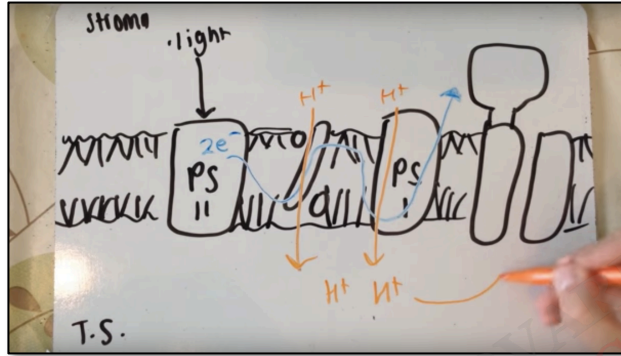 Stroma
light
H+ H+
2e-
PS
II
PS
I
H+ H+
T.S.